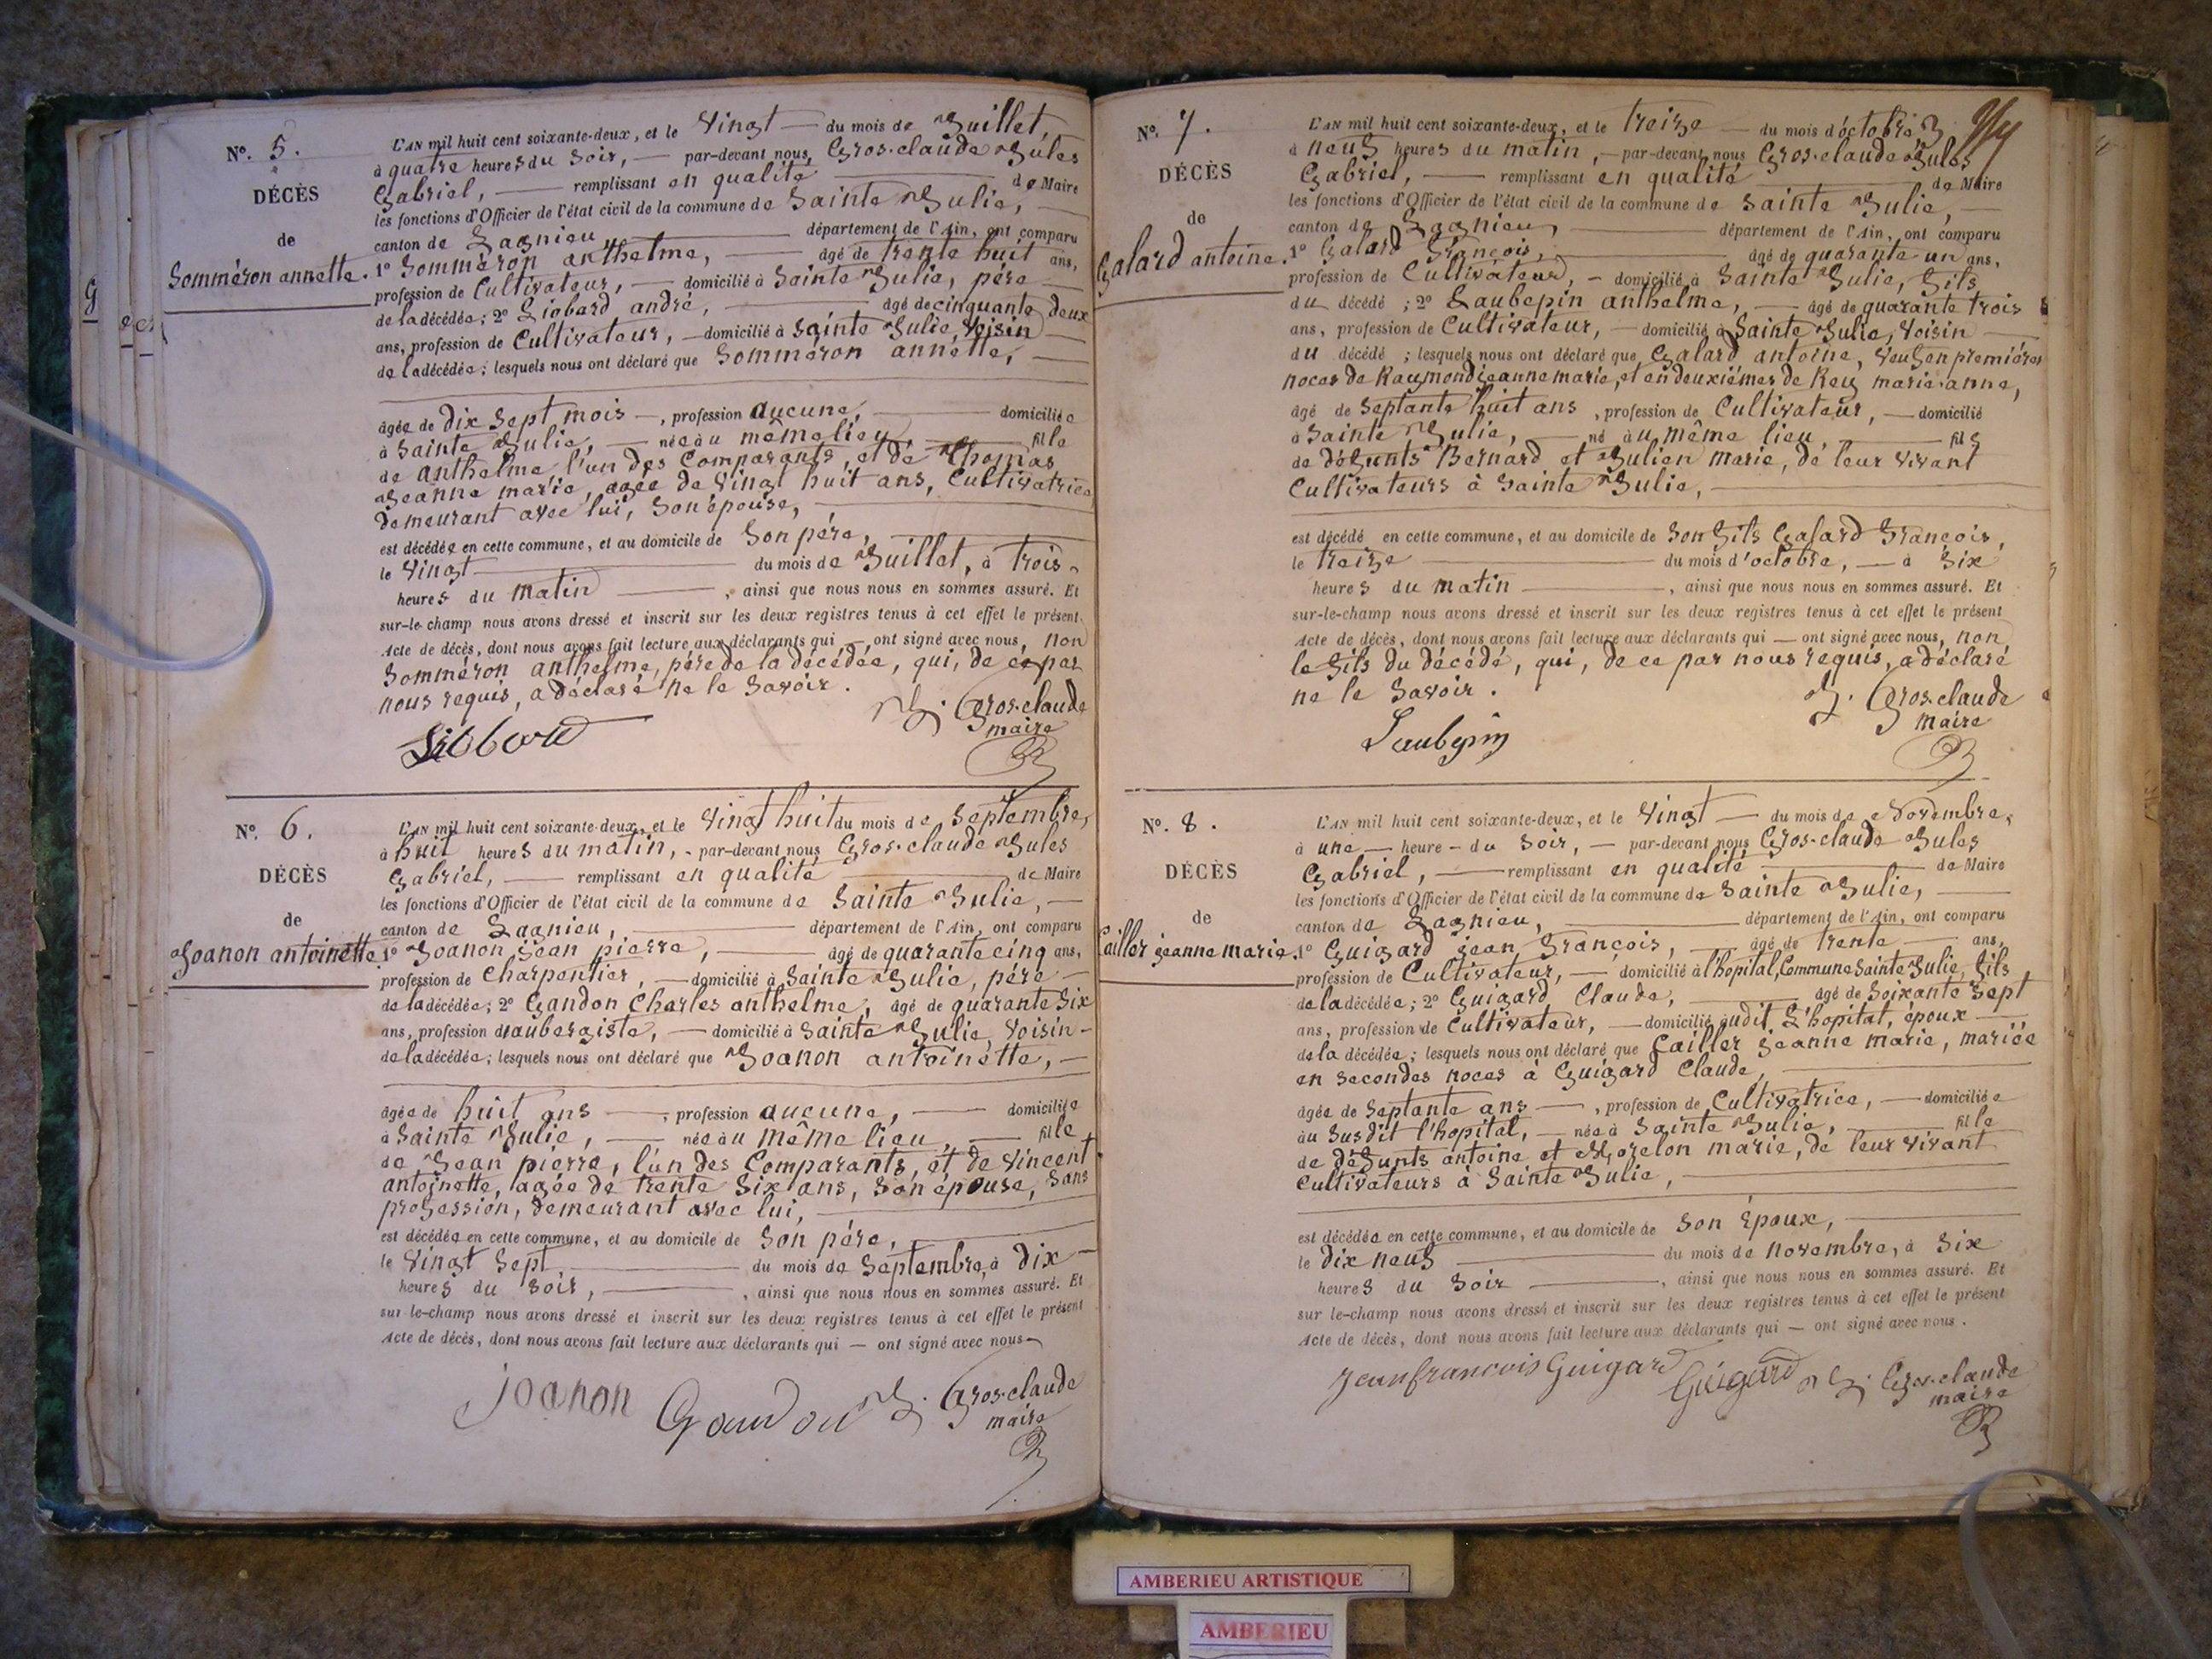 N°. 5.
DÉCÈS
de
Somméron annette.
L'AN mil huit cent soixante-deux, et le Vingt — du mois de Juillet,
à quatre heures du Soir, — par-devant nous, Gros-claude Jules
Gabriel, — remplissant en qualité — de Maire
les fonctions d'Officier de l'état civil de la commune de Sainte Julie, —
canton de Lagnieu, — département de l'Ain, ont comparu
1° Somméron anthelme, — âgé de trente huit ans,
profession de Cultivateur, — domicilié à Sainte Julie, père —
de la décédée; 2° Liobard andré, — âgé de cinquante deux
ans, profession de Cultivateur, — domicilié à Sainte Julie, Voisin —
de la décédée; lesquels nous ont déclaré que Somméron annette, —
âgée de dix Sept mois —, profession aucune, — domiciliée
à Sainte Julie, — née au même lieu, — fille
de anthelme l'un des Comparants, et de Thomas
Jeanne marie, agée de Vingt huit ans, Cultivatrice
demeurant avec lui, Son épouse, —
est décédée en cette commune, et au domicile de Son père, —
le Vingt — du mois de Juillet, à trois
heures du matin —, ainsi que nous nous en sommes assuré. Et
sur-le-champ nous avons dressé et inscrit sur les deux registres tenus à cet effet le présent
Acte de décès, dont nous avons fait lecture aux déclarants qui — ont signé avec nous, non
Somméron anthelme, père de la décédée, qui, de ce par
nous requis, a déclaré ne le Savoir.
Liobard
J. Gros-claude
maire
N°. 6.
DÉCÈS
de
Joanon antoinette
L'AN mil huit cent soixante-deux, et le Vingt huit du mois de Septembre,
à huit heures du matin, - par-devant nous Gros-claude Jules
Gabriel, — remplissant en qualité — de Maire
les fonctions d'Officier de l'état civil de la commune de Sainte Julie, —
canton de Lagnieu, — département de l'Ain, ont comparu
1° Joanon Jean pierre, — âgé de quarante cinq ans,
profession de Charpentier, — domicilié à Sainte Julie, père —
de la décédée; 2° Gandon Charles anthelme, âgé de quarante Six
ans, profession d'aubergiste, — domicilié à Sainte Julie, Voisin —
de la décédée; lesquels nous ont déclaré que Joanon antoinette, —
âgée de huit ans —, profession aucune, — domiciliée
à Sainte Julie, — née au même lieu, — fille
de Jean pierre, l'un des Comparants, et de Vincent
antoinette, agée de trente Six ans, Son épouse, Sans
profession, demeurant avec lui, —
est décédée en cette commune, et au domicile de Son père, —
le Vingt Sept — du mois de Septembre, à dix —
heures du Soir, —, ainsi que nous nous en sommes assuré. Et
sur-le-champ nous avons dressé et inscrit sur les deux registres tenus à cet effet le présent
Acte de décès, dont nous avons fait lecture aux déclarants qui — ont signé avec nous —
Joanon Gandon J. Gros-claude
maire
N°. 7.
DÉCÈS
de
Galard antoine.
L'AN mil huit cent soixante-deux, et le treize — du mois d'octobre
à neuf heures du matin, — par-devant nous Gros-claude Jules
Gabriel, — remplissant en qualité — de Maire
les fonctions d'Officier de l'état civil de la commune de Sainte Julie, —
canton de Lagnieu, — département de l'Ain, ont comparu
1° Galard françois, — âgé de quarante un ans,
profession de Cultivateur, — domicilié à Sainte Julie, fils
du décédé; 2° Laubepin anthelme, — âgé de quarante trois
ans, profession de Cultivateur, — domicilié à Sainte Julie, Voisin —
du décédé; lesquels nous ont déclaré que Galard antoine, Veuf en premières
noces de Raymond jeanne marie, et en deuxièmes de Rey marie anne,
âgé de Septante huit ans, profession de Cultivateur, — domicilié
à Sainte Julie, — né au même lieu, — fils
de défunts Bernard et Julien marie, de leur vivant
Cultivateurs à Sainte Julie, —
est décédé en cette commune, et au domicile de Son fils Galard françois,
le treize — du mois d'octobre, — à Six
heures du matin —, ainsi que nous nous en sommes assuré. Et
sur-le-champ nous avons dressé et inscrit sur les deux registres tenus à cet effet le présent
Acte de décès, dont nous avons fait lecture aux déclarants qui — ont signé avec nous, non
le fils du décédé, qui, de ce par nous requis, a déclaré
ne le Savoir.
Laubepin
J. Gros-claude
maire
N°. 8.
DÉCÈS
de
Cailler jeanne marie.
L'AN mil huit cent soixante-deux, et le Vingt — du mois de Novembre,
à une — heure - du Soir, — par-devant nous Gros-claude Jules
Gabriel, — remplissant en qualité — de Maire
les fonctions d'Officier de l'état civil de la commune de Sainte Julie, —
canton de Lagnieu, — département de l'Ain, ont comparu
1° Guigard jean françois, — âgé de trente — ans,
profession de Cultivateur, — domicilié à l'hopital, Commune Sainte Julie, fils
de la décédée; 2° Guigard Claude, — âgé de Soixante Sept
ans, profession de Cultivateur, — domicilié audit L'hopital, époux —
de la décédée; lesquels nous ont déclaré que Cailler jeanne marie, mariée
en secondes noces à Guigard Claude, —
âgée de Septante ans —, profession de Cultivatrice, — domiciliée
au Susdit l'hopital, — née à Sainte Julie, — fille
de défunts antoine et Morelon marie, de leur vivant
Cultivateurs à Sainte Julie, —
est décédée en cette commune, et au domicile de Son Epoux, —
le dix neuf — du mois de novembre, à Six
heures du Soir —, ainsi que nous nous en sommes assuré. Et
sur le-champ nous avons dressé et inscrit sur les deux registres tenus à cet effet le présent
Acte de décès, dont nous avons fait lecture aux déclarants qui — ont signé avec nous.
Jean francois Guigard Guigard J. Gros-claude
maire
AMBERIEU ARTISTIQUE
AMBERIEU